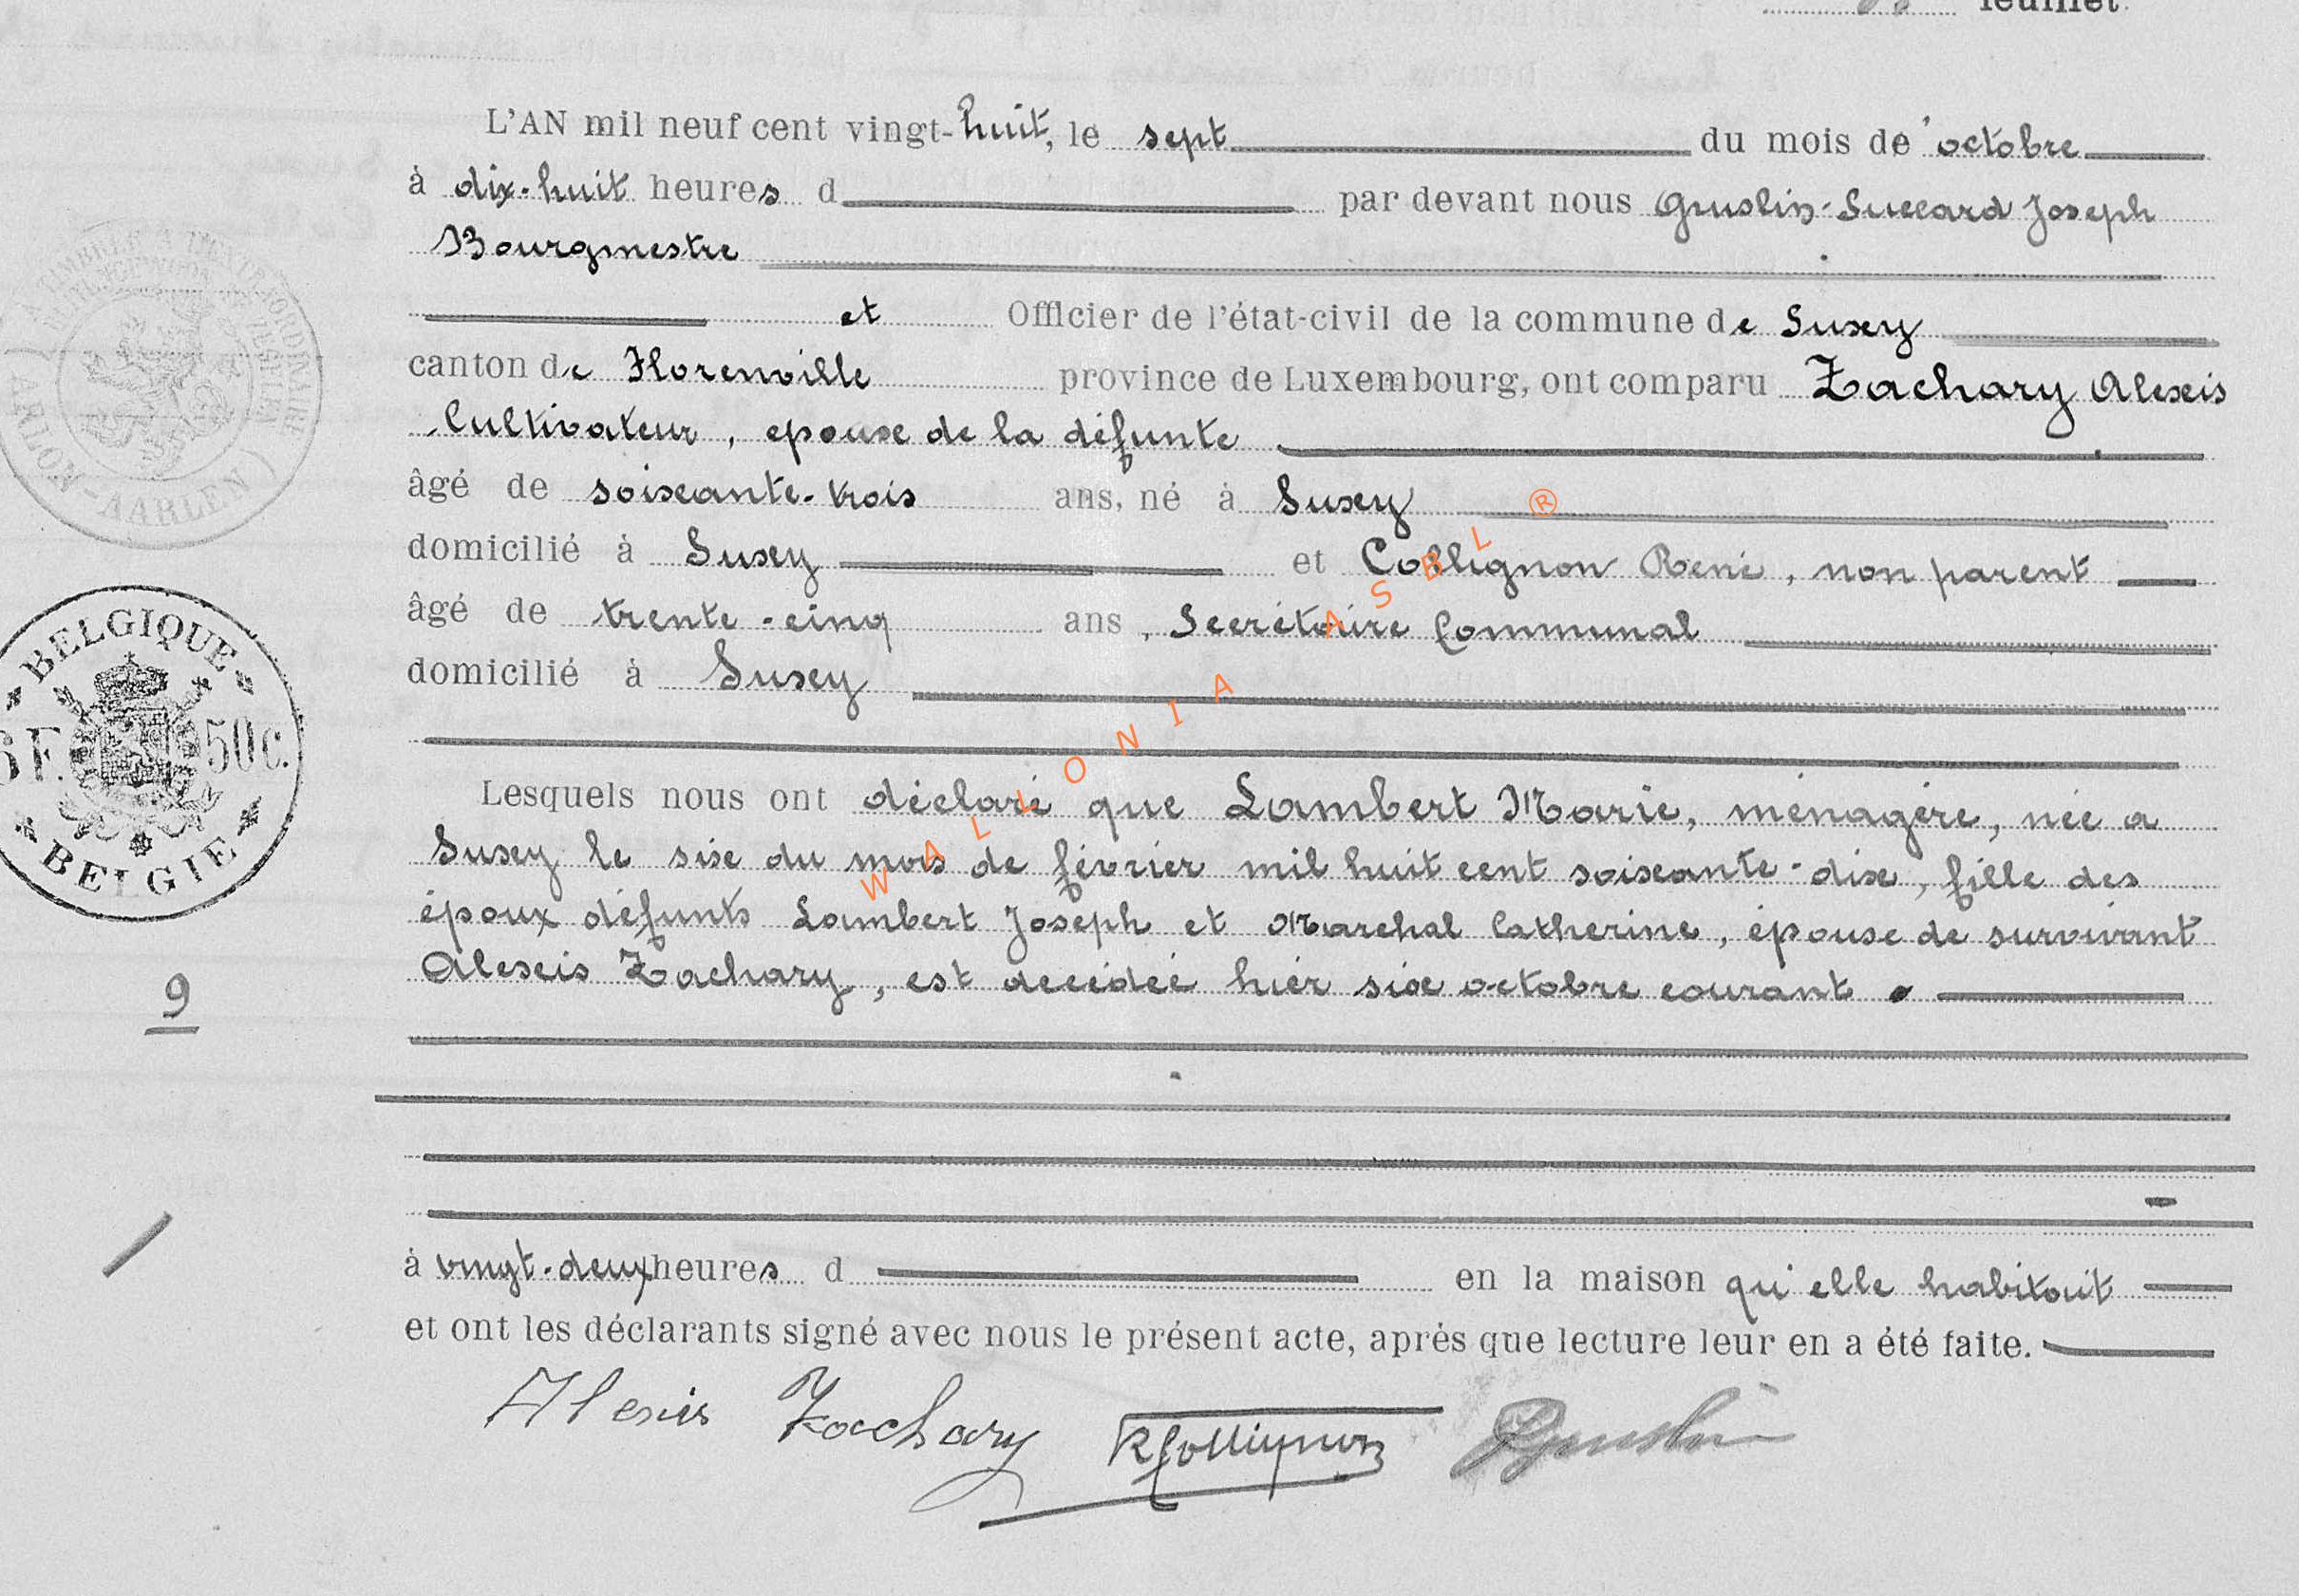 feuillet
L'AN mil neuf cent vingt-huit, le sept du mois de octobre
à dix-huit heures d par devant nous Gruslin-Suleard Joseph
Bourgmestre
et Officier de l'état-civil de la commune de Suxy
canton de Florenville province de Luxembourg, ont comparu Zachary Alexis
Cultivateur, epouse de la défunte
âgé de soixante-trois ans, né à Suxy
domicilié à Suxy et Collignon René, non parent
âgé de trente-cinq ans, Secrétaire Communal
domicilié à Suxy
Lesquels nous ont déclaré que Lambert Marie, ménagère, née a
Suxy le six du mois de février mil huit cent soixante-dix, fille des
époux défunts Lambert Joseph et Marchal Catherine, épouse de survivant
Alexis Zachary, est decédée hier six octobre courant.
à vingt-deux heures d en la maison qu'elle habitait
et ont les déclarants signé avec nous le présent acte, après que lecture leur en a été faite.
Alexis Zachary RCollignon JGruslin
A TIMBRER A L'EXTRAORDINAIRE
ARLON-AARLEN
BELGIQUE
6F. 50c.
BELGIE
9
WALLONIA ASBL ®